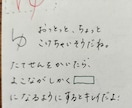 ゆ
ゆ
おっとっと、ちょっと
こけちゃいそうだね。
たてせんをかいたら、
よこながしかく
になるようにするとキレイだよ!